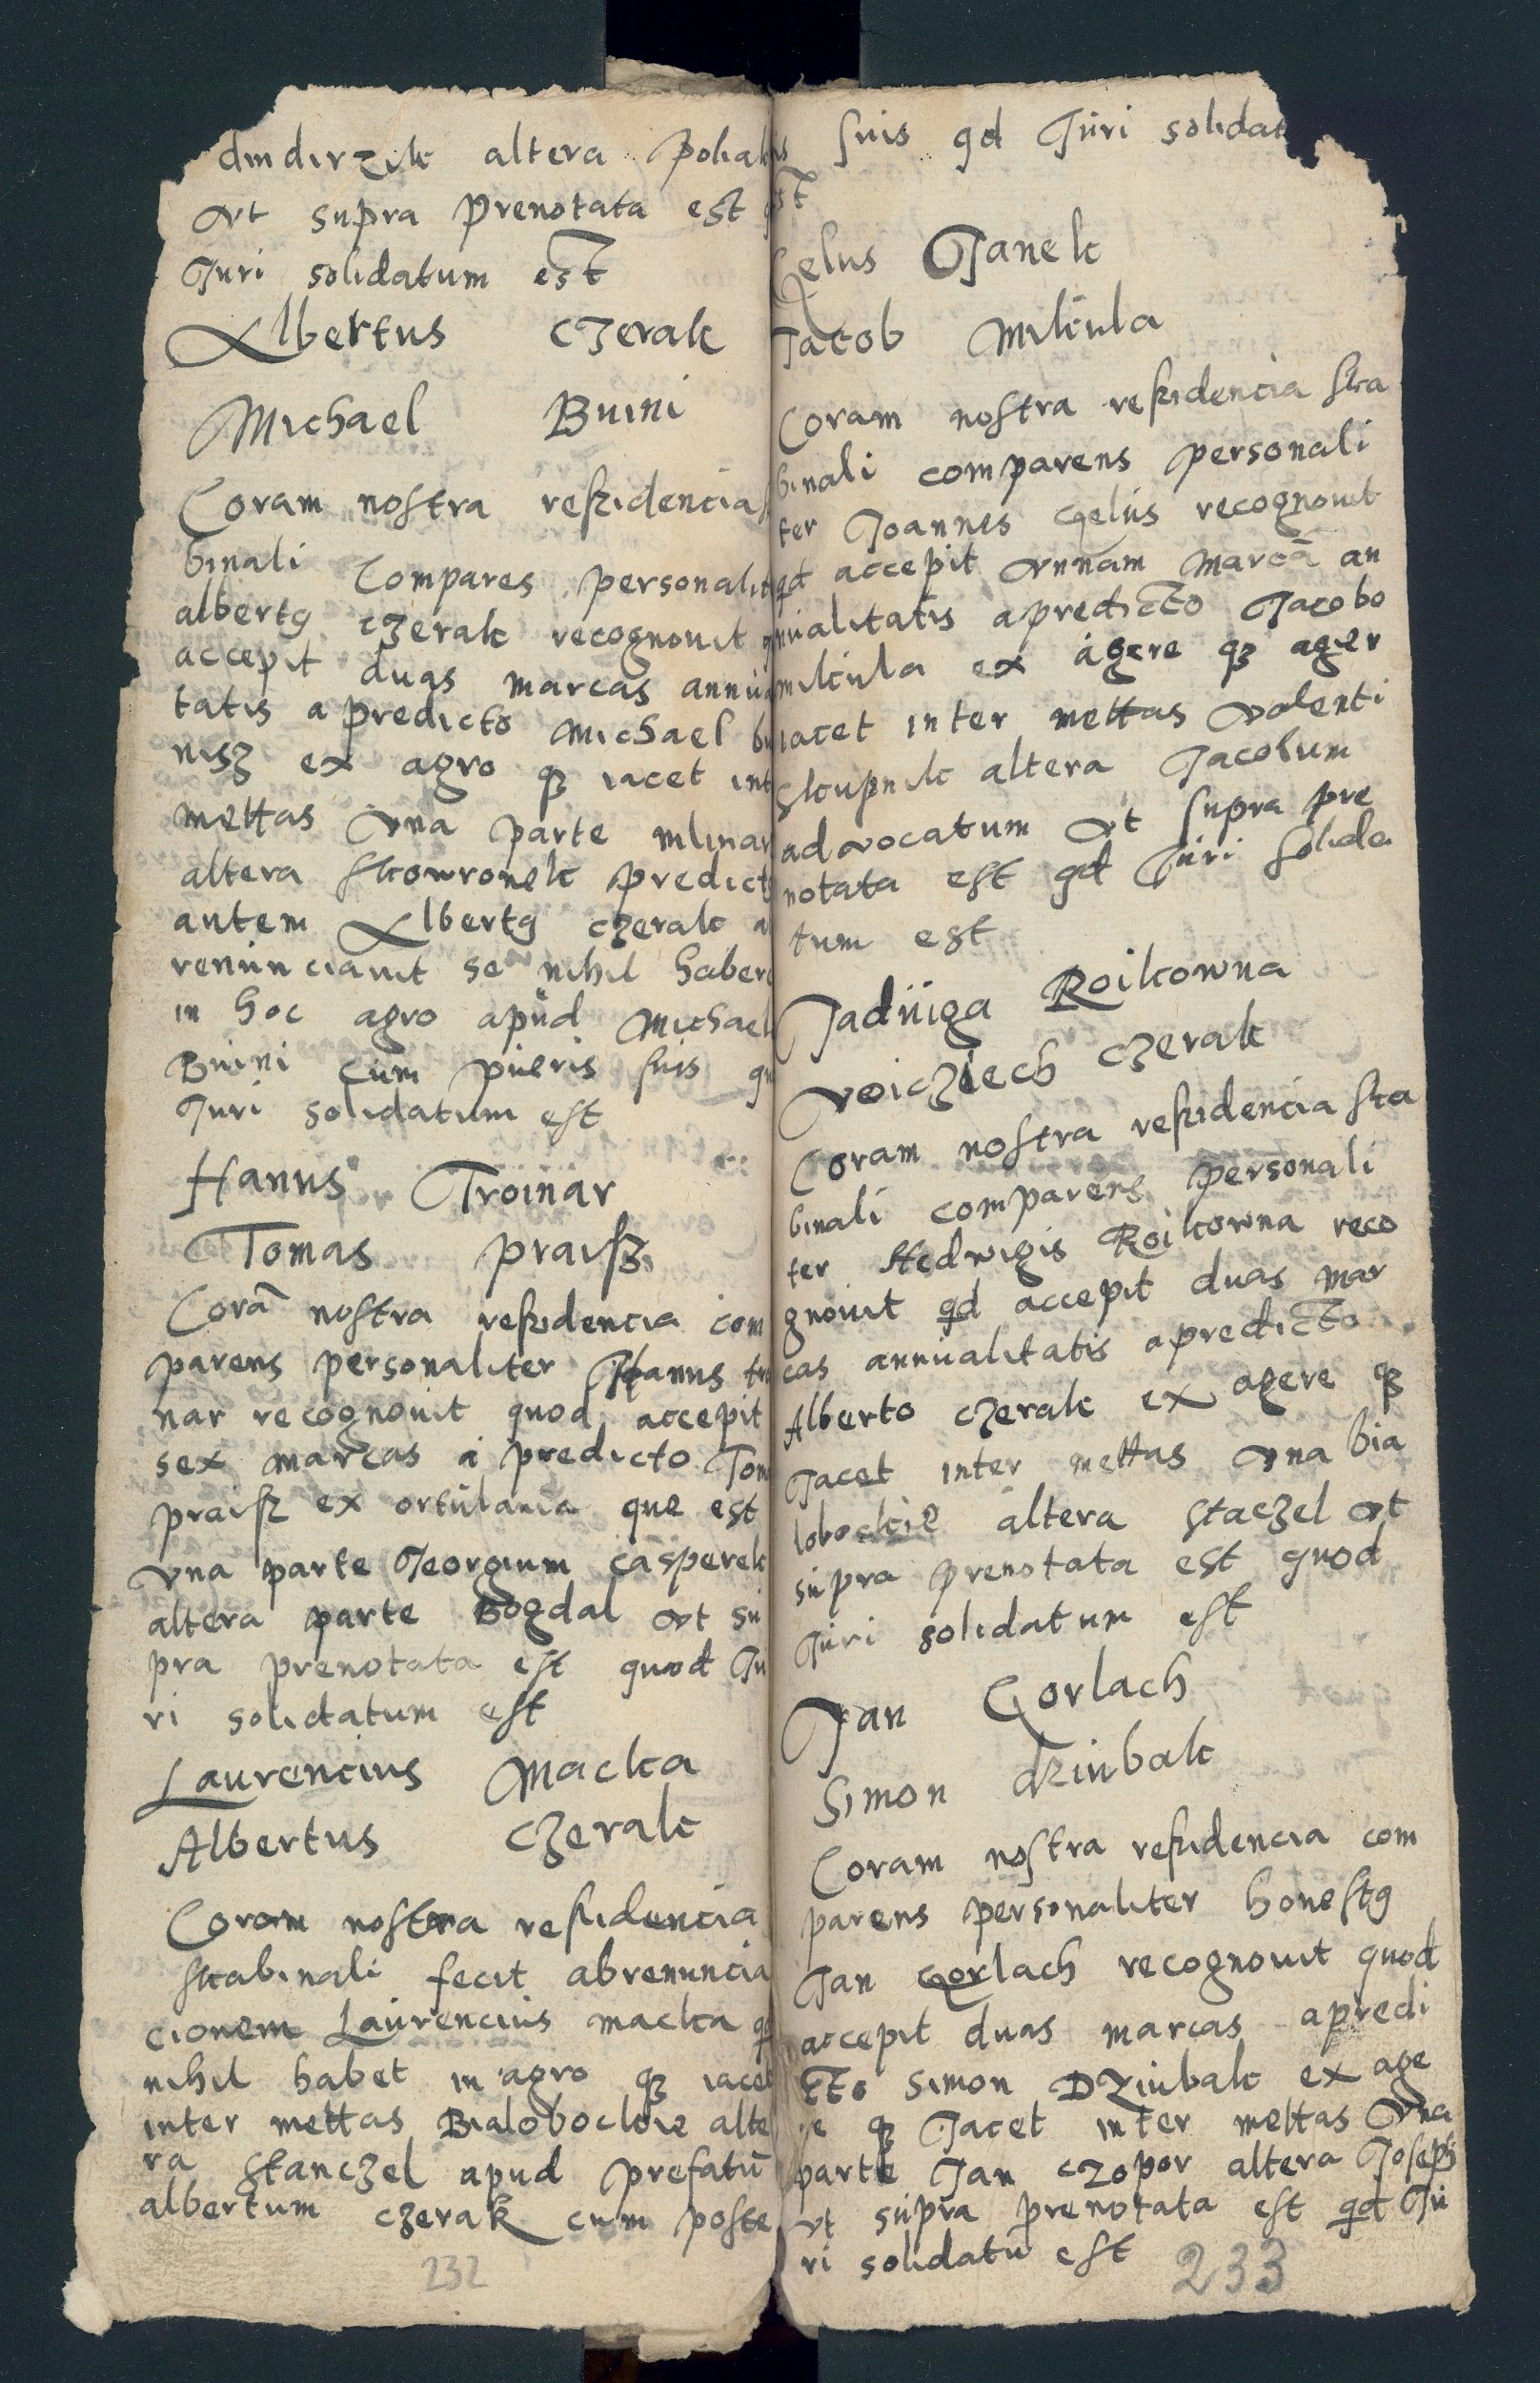 dindirzik altera polak
vt supra prenotata est q
Juri solidatum est
Albertus Czerak
Michael Buini
Coram nostra reszidencia s
binali compares personalit
albertg czerak recognouit q
accepit duas marcas annúa
tatis a predicto Michael bu
nisz ex agro qz iacet int
mettas vna parte mlinar
altera skowronek predict
autem Albertg czerak a
renúnciauit se nihil haber
in hoc agro apúd Michael
Buini cúm púeris suis qu
Juri solidatum est
Hanus Troinar
Tomas praisz
Corā nostra reszidencia com
parens personaliter Hanus tro
nar recognouit quod accepit
sex marcas á predicto Tom
praisz ex ortúlania que est
vna parte Georgium casperek
altera parte Bogdal vt sú
pra prenotata est quod Jú
ri solidatum est
Laurencius Macka
Albertus Czerak
Coram nostra reszidencia
skabinali fecit abrenuncia
cionem Laúrenciús macka qd
nihil habet in agro qz iacet
inter mettas Bialobockie alte
ra stanczel apud prefatū
albertum czerak cum poste
232
is suis qd Júri solidat
est
Gelus Janek
Jacob Mikula
Coram nostra reszidencia ska
binali comparens personali
ter Joannes gelús recognouit
qd accepit vnnam marcā an
núalitatis apredicto Jacobo
mikúla ex ágere qz ager
iacet inter mettas valenti
skupnik altera Jacobum
advocatum vt supra pre
notata est qd Júri solida
tum est
Jadúiga Roikowna
voicziech czerak
Coram nostra reszidencia ska
binali comparens personali
ter Hedwigis Roikowna reco
gnouit qd accepit duas mar
cas annúalitatis apredicto
Alberto czerak ex agere qz
Jacet inter mettas vna bia
lobockie áltera staczel vt
súpra prenotata est quod
Júri solidatum est
Jan Gorlach
Simon dziúbak
Coram nostra reszidencia com
parens personaliter honestg
Jan gorlach recognouit quod
accepit duas marcas apredi
cto simon Dziúbak ex age
re qz Jacet inter mettas vna
parte Jan czopor altera Joseph
vt súpra prenotata est qd Jú
ri solidatū est
233